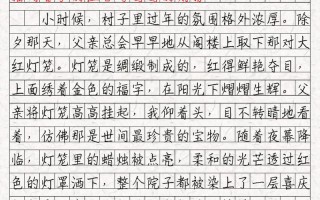 小时候，村子里过年的氛围格外浓厚。除
夕那天，父亲总会早早地从阁楼上取下那对大
红灯笼。灯笼是绸缎制成的，红得鲜艳夺目，
上面绣着金色的福字，在阳光下熠熠生辉。父
亲将灯笼高高挂起，我仰着头，目不转睛地看
着，仿佛那是世间最珍贵的宝物。随着夜幕降
临，灯笼里的蜡烛被点亮，柔和的光芒透过红
色的灯罩洒下，整个院子都被染上了一层喜庆